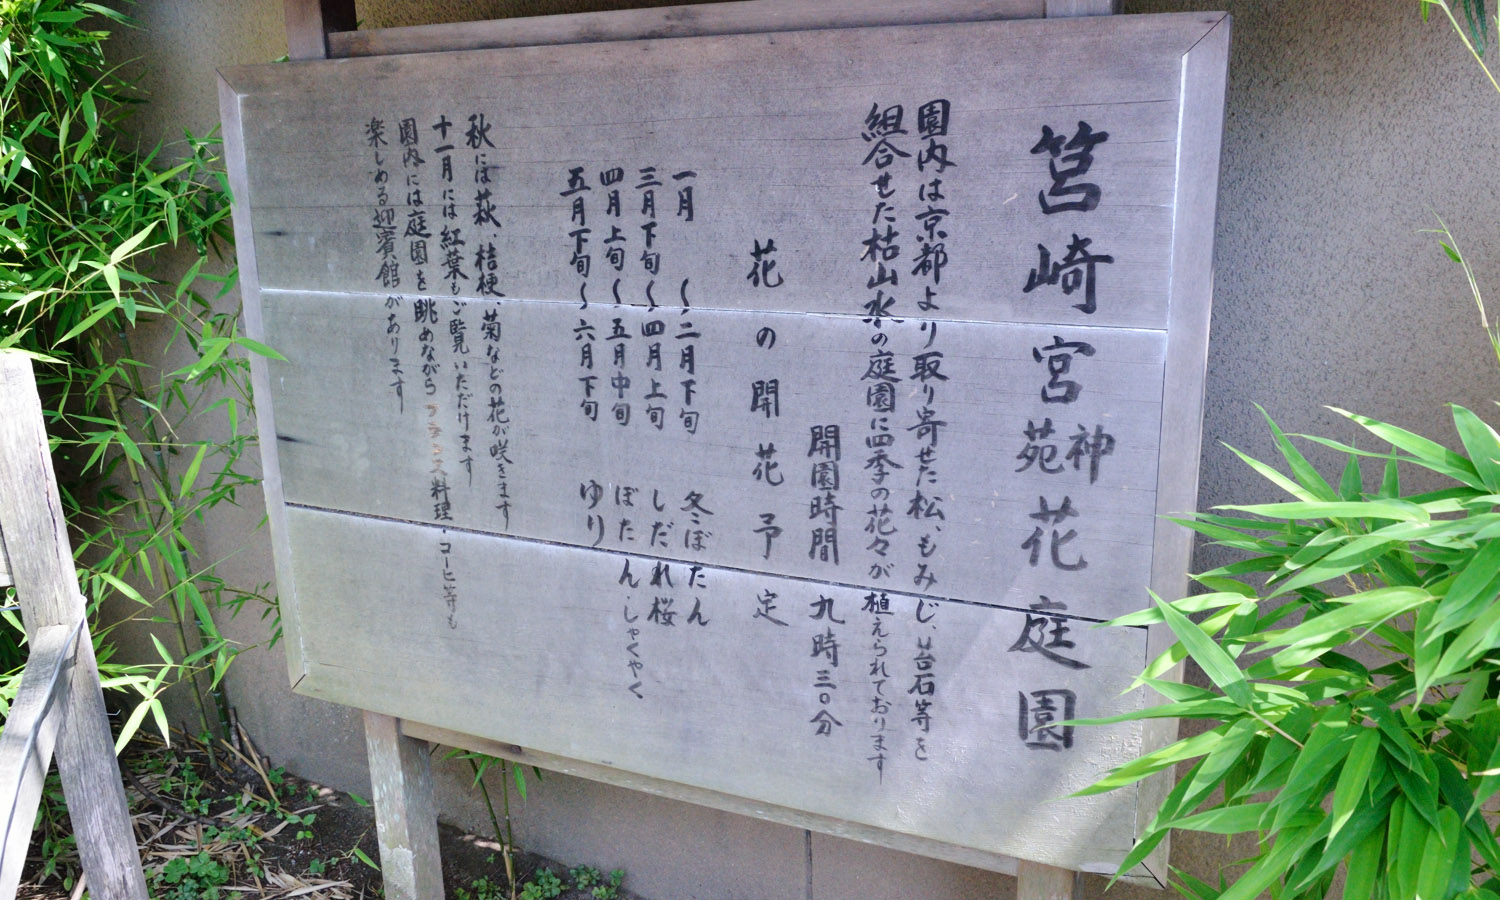 筥崎宮神苑花庭園
園内は京都より取り寄せた松、もみじ、岩石等を
組合せた枯山水の庭園に四季の花々が植えられております
開園時間 九時三〇分
花の開花予定
一月 〜二月下旬 冬ぼたん
三月下旬〜四月上旬 しだれ桜
四月上旬〜五月中旬 ぼたん・しゃくやく
五月下旬〜六月下旬 ゆり
秋には萩、桔梗、菊などの花が咲きます
十一月には紅葉もご覧いただけます
園内には庭園を眺めながら 料理・コーヒ等も
楽しめる迎賓館があります